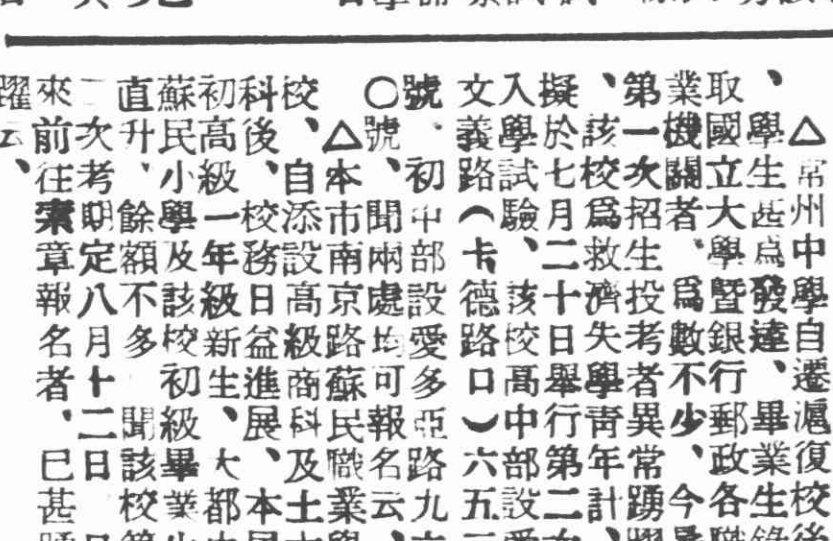 △常州中學自遷滬復校後
、學生甚爲發達、畢業生錄
取國立大學曁銀行郵政各職
業機關者、爲數不少、今
第一次招生投考者異常踴躍
、該校爲救濟失學靑年計、
擬於七月二十日舉行第二次
入學試驗、該校高中部設愛
文義路（卡德路口）六五
號、初中部設愛多亞路九
〇號、聞兩處均可報名云、
△本市南京路蘇民職業學
校、自添設高級商科及土木
科後、校務日益進展、本屆
初高級一年級新生、大都由
蘇民小學及該校初級畢業生
直升、餘額不多 聞該校第
二次考期定八月十二日 日
來前往索章報名者、已甚踴
躍云、